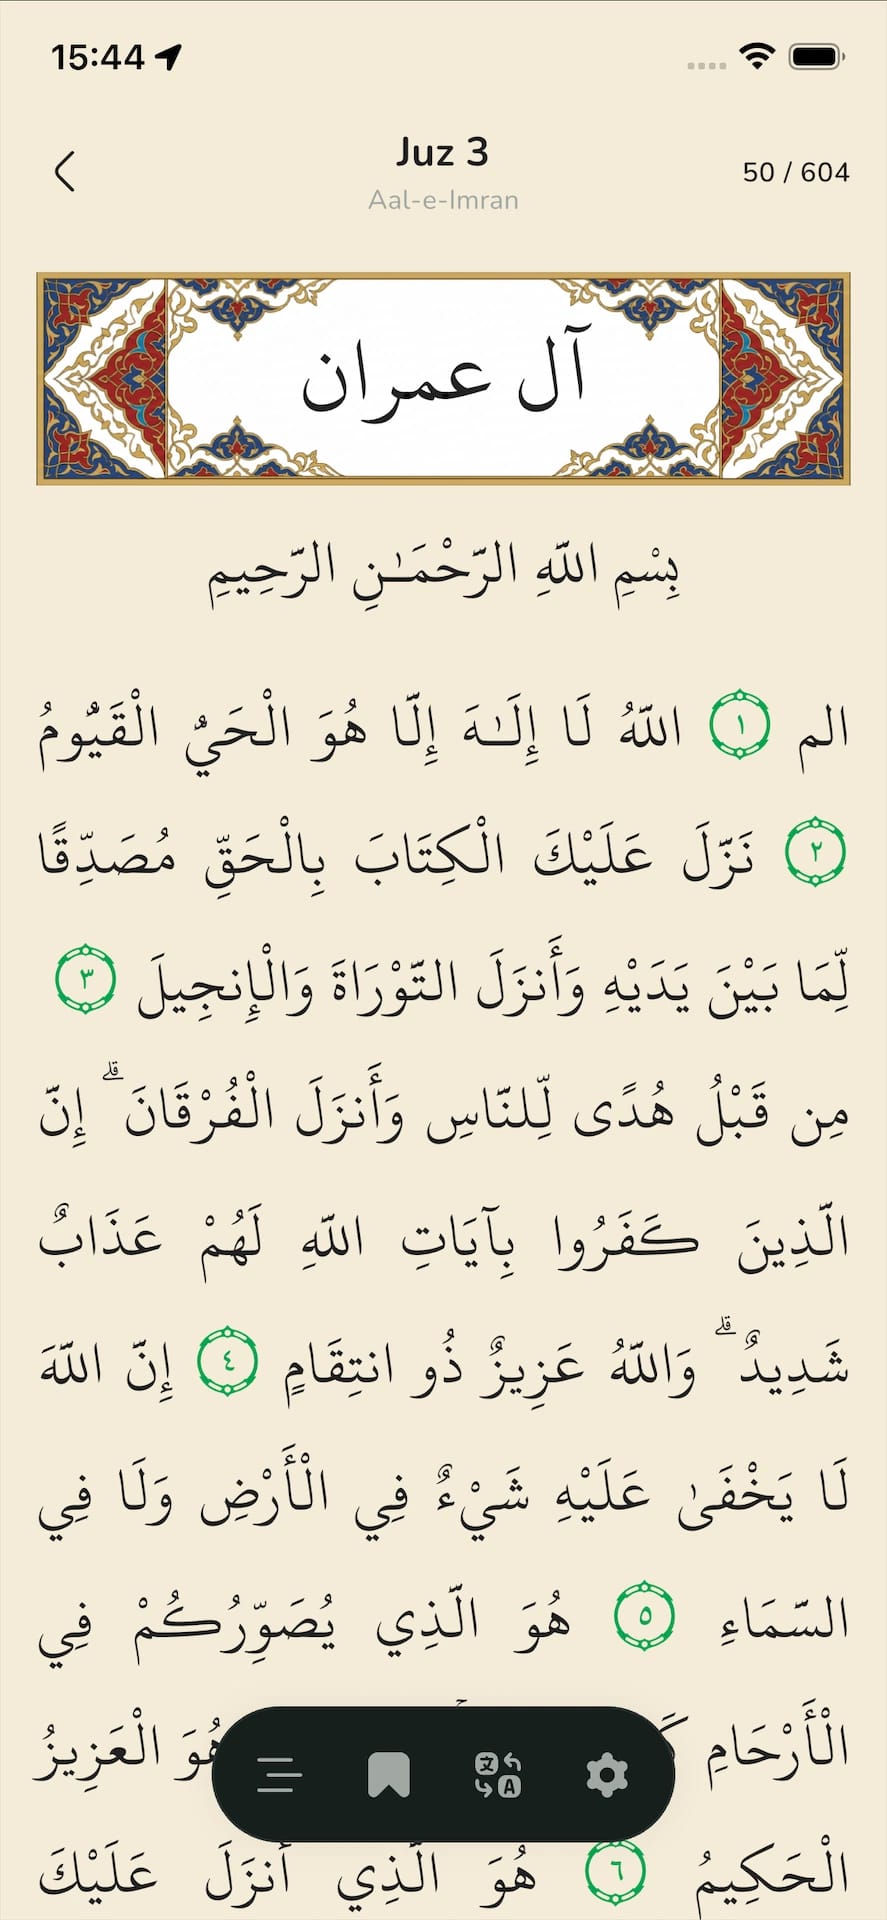 15:44
Juz 3
Aal-e-Imran
50 / 604
آل عمران
بِسْمِ اللَّهِ الرَّحْمَـٰنِ الرَّحِيمِ
الم ١ اللَّهُ لَا إِلَـٰهَ إِلَّا هُوَ الْحَيُّ الْقَيُّومُ
٢ نَزَّلَ عَلَيْكَ الْكِتَابَ بِالْحَقِّ مُصَدِّقًا
لِّمَا بَيْنَ يَدَيْهِ وَأَنزَلَ التَّوْرَاةَ وَالْإِنجِيلَ ٣
مِن قَبْلُ هُدًى لِّلنَّاسِ وَأَنزَلَ الْفُرْقَانَ ۗ إِنَّ
الَّذِينَ كَفَرُوا بِآيَاتِ اللَّهِ لَهُمْ عَذَابٌ
شَدِيدٌ ۗ وَاللَّهُ عَزِيزٌ ذُو انتِقَامٍ ٤ إِنَّ اللَّهَ
لَا يَخْفَىٰ عَلَيْهِ شَيْءٌ فِي الْأَرْضِ وَلَا فِي
السَّمَاءِ ٥ هُوَ الَّذِي يُصَوِّرُكُمْ فِي
الْأَرْحَامِ هُوَ الْعَزِيزُ
الْحَكِيمُ ٦ هُوَ الَّذِي أَنزَلَ عَلَيْكَ